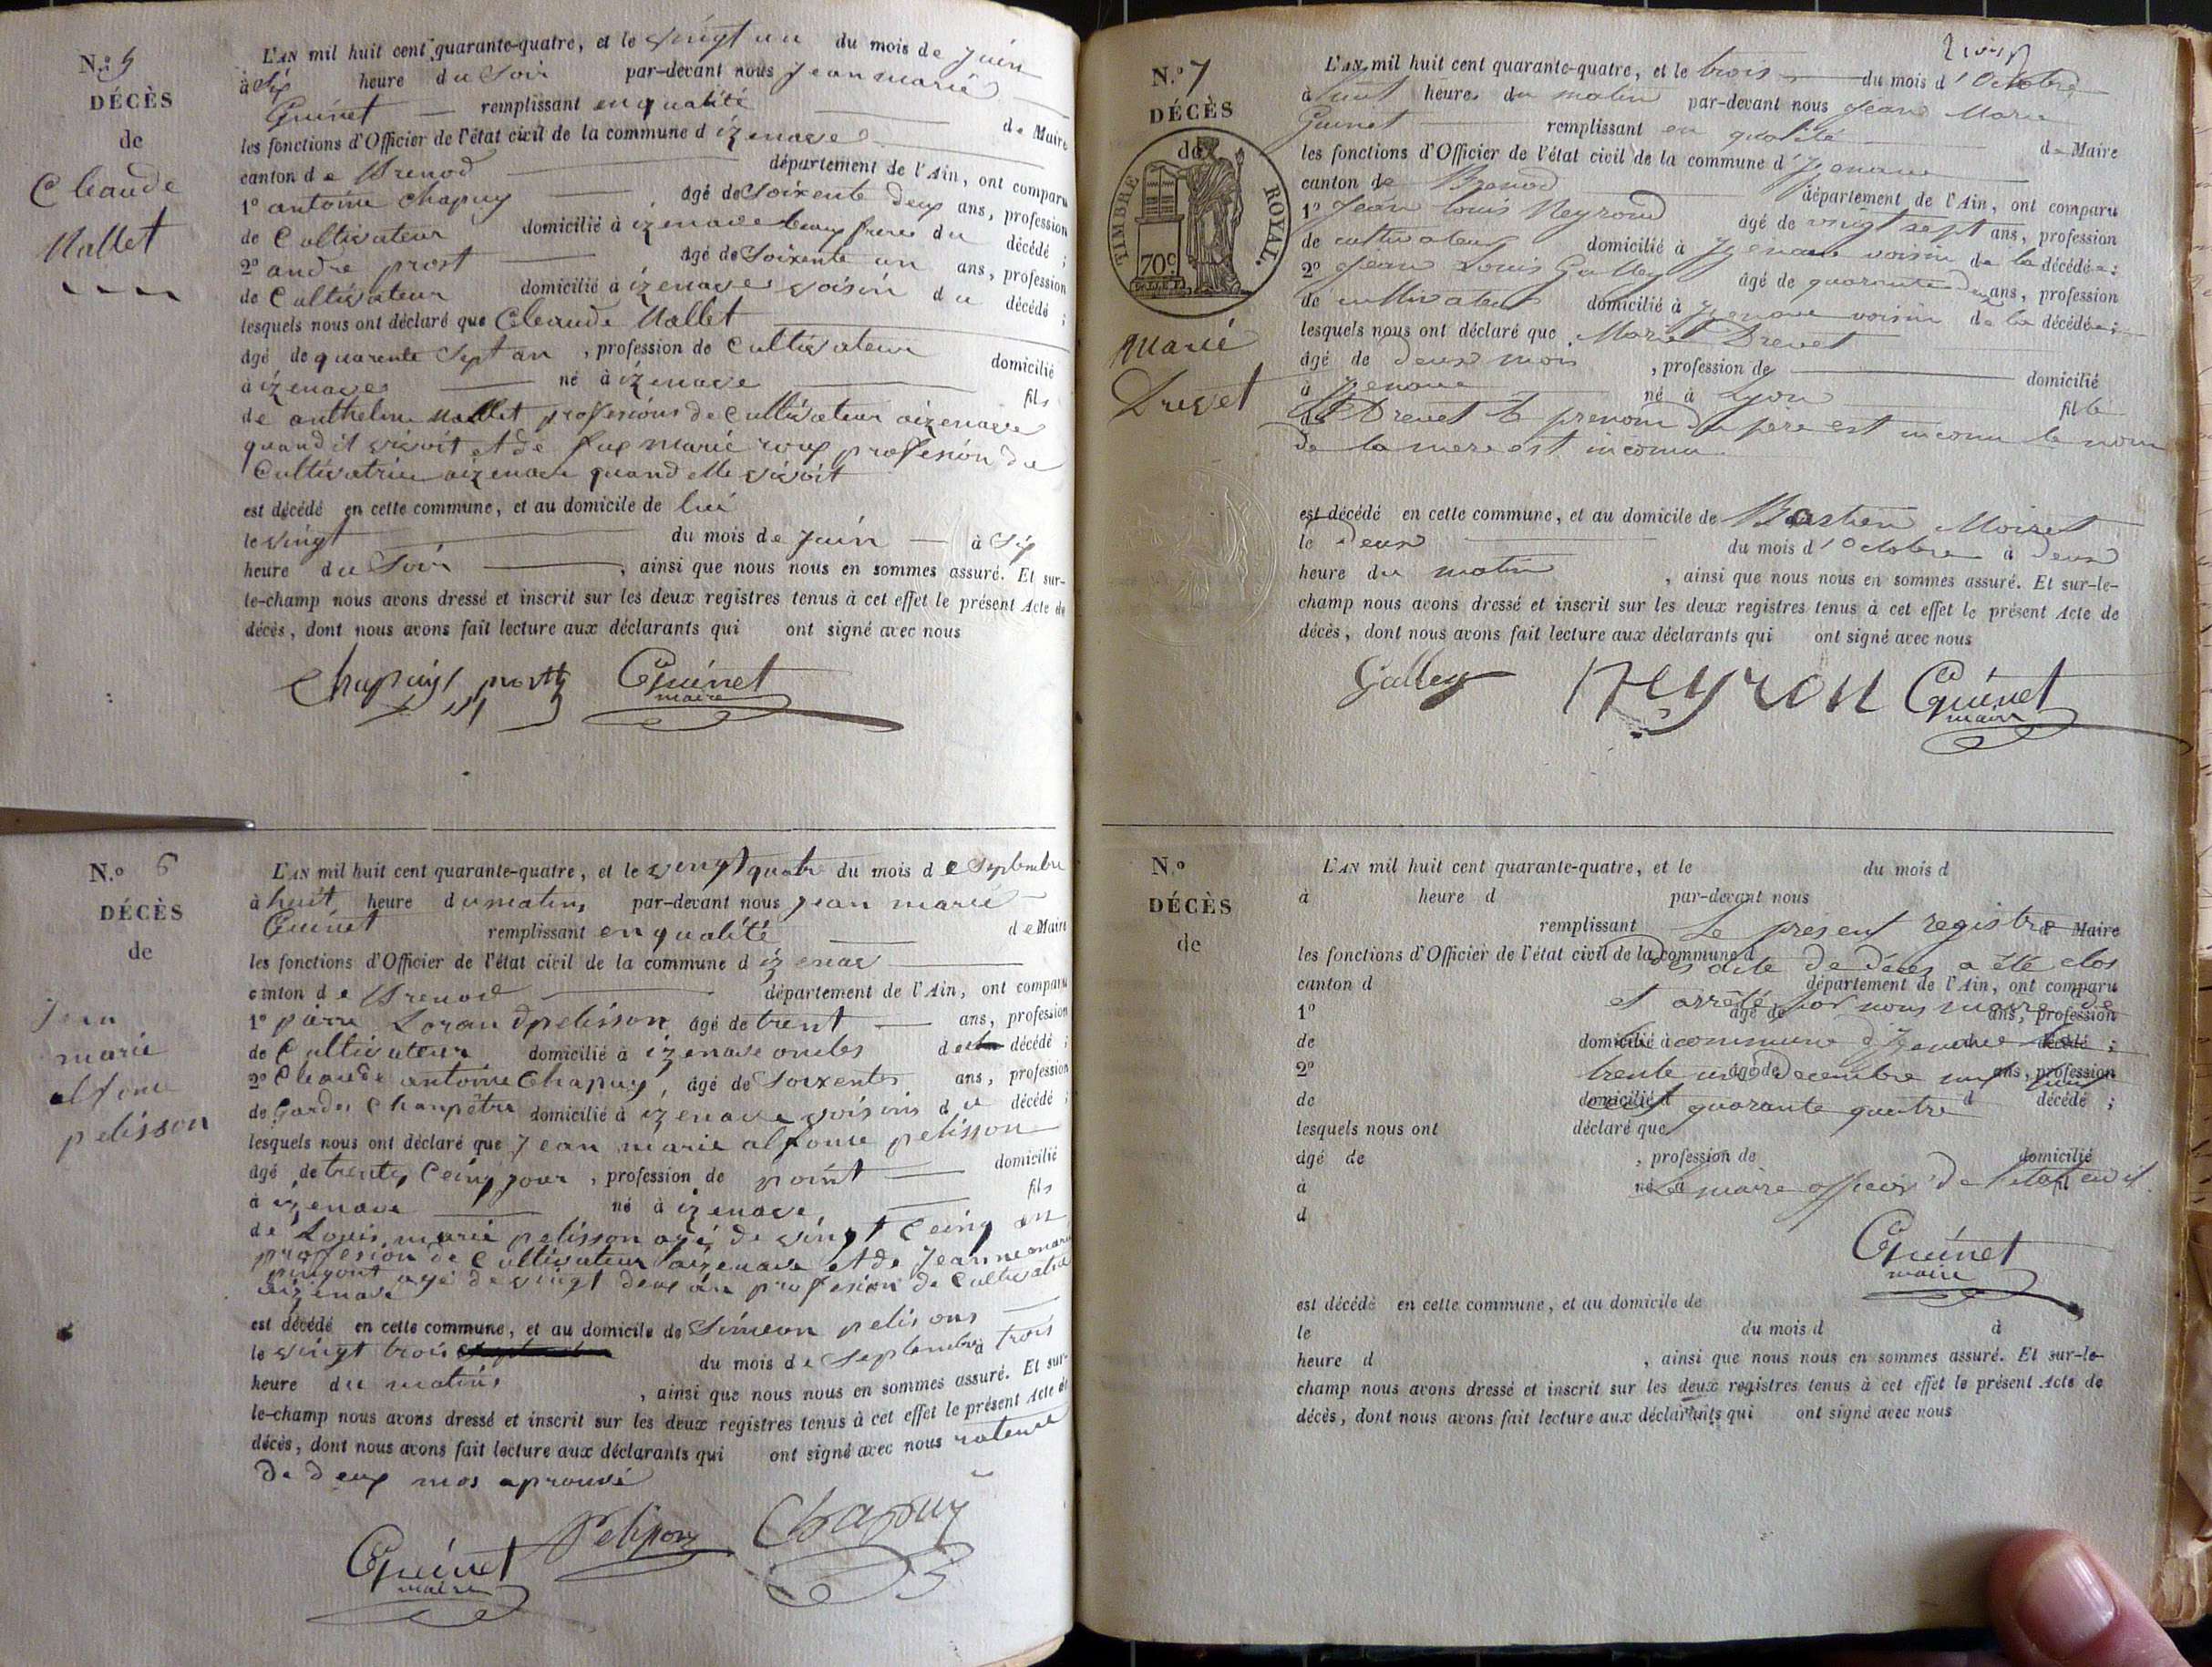 N.º 5
DÉCÈS
de
Claude
Mallet
L'AN mil huit cent quarante-quatre, et le vingt un du mois de juin
à six heure du Soir par-devant nous jean marie
Guinet remplissant en qualité de Maire
les fonctions d'Officier de l'état civil de la commune d izenave
canton de Brenod département de l'Ain, ont comparu
1º antoine chapuy agé de Soixente deux ans, profession
de Cultivateur domicilié à izenave beaux frere du décédé ;
2º andre prost agé de Soixente un ans, profession
de Cultivateur domicilié à izenave voisin du décédé ;
lesquels nous ont déclaré que Cleaude Mallet
agé de quarente Sept an , profession de Cultivateur domicilié
à izenave né à izenave fils
de anthelme Mallet professions de Cultivateur aizenave
quand it vivoit et de fux marie roux profesion de
Cultivatrice aizenave quand elle vivoit
est décédé en cette commune, et au domicile de lui
le vingt du mois de juin à Six
heure du Soir , ainsi que nous nous en sommes assuré. Et sur-
le-champ nous avons dressé et inscrit sur les deux registres tenus à cet effet le présent Acte de
décès, dont nous avons fait lecture aux déclarants qui ont signé avec nous
Guinet
maire
N.º 6
DÉCÈS
de
jean
marie
alfonce
pelisson
L'AN mil huit cent quarante-quatre, et le vingt quatre du mois de Septembre
à huit heure du matins par-devant nous jean marie
Guinet remplissant en qualité de Maire
les fonctions d'Officier de l'état civil de la commune d izenave
canton de Brenod département de l'Ain, ont comparu
1º pierre Lorand pelisson agé de trent ans, profession
de Cultivateur domicilié à izenave oncles de décédé ;
2º Cleaude antoine Chapuy, agé de Soixentes ans, profession
de Gardes Chanpêtre domicilié à izenave voisins du décédé ;
lesquels nous ont déclaré que Jean marie alfonce pelisson
agé de trente Ceinq jour , profession de point domicilié
à izenave né à izenave fils
de Louis marie pelisson agé de vingt Ceinq an
profesion de Cultivateur aizenave et de Jeanne marie
agé de vingt deux an profesion de Cultivatrice
aizenave
est décédé en cette commune, et au domicile de Simeon pelisons
le vingt trois du mois de Septembre à trois
heure du matins , ainsi que nous nous en sommes assuré. Et sur-
le-champ nous avons dressé et inscrit sur les deux registres tenus à cet effet le présent Acte de
décès, dont nous avons fait lecture aux déclarants qui ont signé avec nous rature
de deux mos aprouvé
Guinet Pelisson Chapuy
maire
N.º 7
DÉCÈS
de
TIMBRE ROYAL.
70c
Marie
Drevet
L'AN mil huit cent quarante-quatre, et le trois du mois d'Octobre
à huit heures du matin par-devant nous Jean Marie
Guinet remplissant en qualité de Maire
les fonctions d'Officier de l'état civil de la commune d'Izenave
canton de Brenod département de l'Ain, ont comparu
1º Jean Louis Neyroud agé de vingt sept ans, profession
de cultivateur domicilié à Izenave voisin de la décédée ;
2º Jean Louis Galley agé de quarante deux ans, profession
de cultivateur domicilié à Izenave voisin de la décédée ;
lesquels nous ont déclaré que Marie Drevet
agé de deux mois , profession de domicilié
à Izenave né à Lyon fille
de Drevet le prenom du père est inconu le nom
de la mere est inconu
est décédé en cette commune, et au domicile de Bastien Moiret
le deux du mois d'Octobre à deux
heure du matin , ainsi que nous nous en sommes assuré. Et sur-le-
champ nous avons dressé et inscrit sur les deux registres tenus à cet effet le présent Acte de
décès, dont nous avons fait lecture aux déclarants qui ont signé avec nous
Galley Neyron Guinet
maire
N.º
DÉCÈS
de
L'AN mil huit cent quarante-quatre, et le du mois d
à heure d par-devant nous
remplissant d Maire
Le present registre
les fonctions d'Officier de l'état civil de la commune d
des acte de décès a été clos
canton d département de l'Ain, ont comparu
et arrêté par nous maire de
1º agé de ans, profession
de domicilié à décédé ;
la commune d'Izenave le
2º agé de ans, profession
trente un decembre mil huit
de domicilié à d décédé ;
cent quarante quatre
lesquels nous ont déclaré que
agé de , profession de domicilié
à né à fil
Le maire officier de l'état civil
d
Guinet
maire
est décédé en cette commune, et au domicile de
le du mois d à
heure d , ainsi que nous nous en sommes assuré. Et sur-le-
champ nous avons dressé et inscrit sur les deux registres tenus à cet effet le présent Acte de
décès, dont nous avons fait lecture aux déclarants qui ont signé avec nous